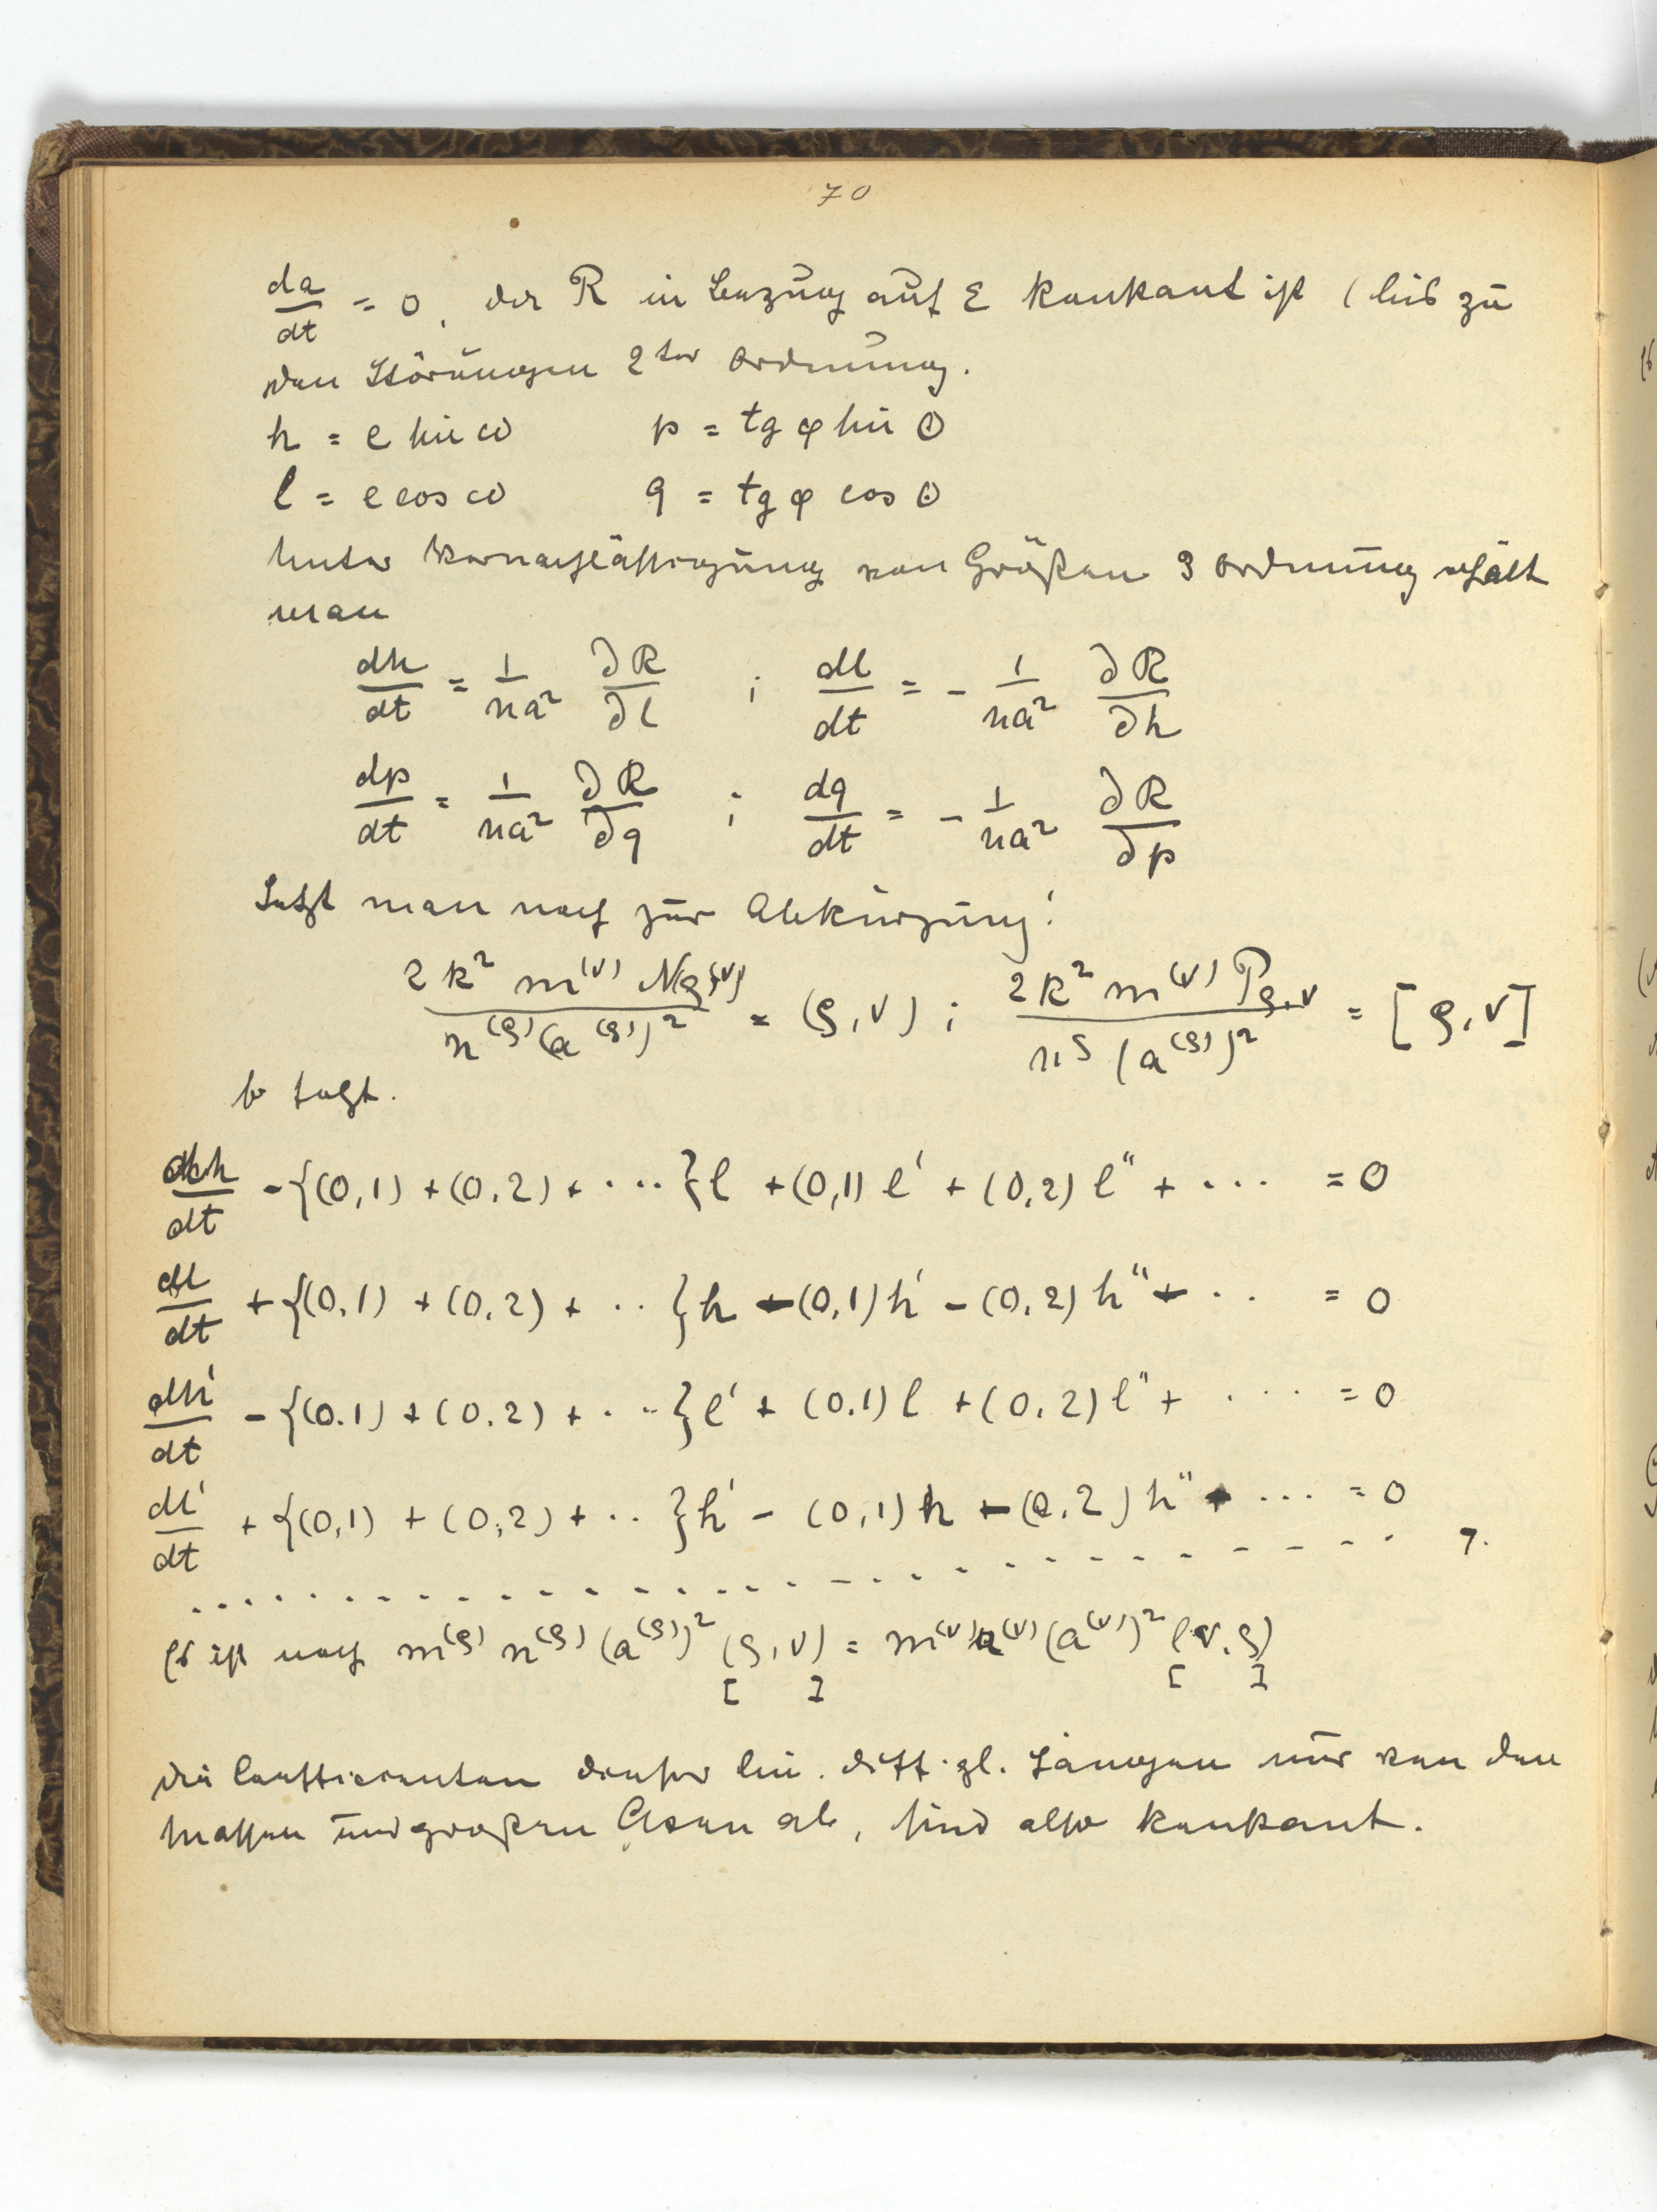 70
da/dt = 0, da R in Bezug auf ε konstant ist (bis zu
den Störungen 2ter Ordnung.
h = e sin ω    p = tg φ sin θ
l = e cos ω    q = tg φ cos θ
Unter Vernachlässigung von Größen 3 Ordnung erhält
man
dh/dt = 1/na² ∂R/∂l ; dl/dt = - 1/na² ∂R/∂h
dp/dt = 1/na² ∂R/∂q ; dq/dt = - 1/na² ∂R/∂p
Setzt man noch zur Abkürzung:
2k² m^(ν) N_ρ,ν / n^(ρ) (a^(ρ))² = (ρ, ν) ; 2k² m^(ν) P_ρ,ν / n^ρ (a^(ρ))² = [ρ, ν]
so folgt.
dh/dt - {(0,1) + (0,2) + ····}l + (0,1) l' + (0,2) l'' + ··· = 0
dl/dt + {(0,1) + (0,2) + ··}h - (0,1) h' - (0,2) h'' - ·· = 0
dh'/dt - {(0.1) + (0.2) + ···}l' + (0.1) l + (0,2) l'' + ···· = 0
dl'/dt + {(0,1) + (0,2) + ··}h' - (0,1) h - (0,2) h'' - ··· = 0
7.
Es ist noch m^(ρ) n^(ρ) (a^(ρ))² (ρ, ν) = m^(ν) n^(ν) (a^(ν))² (ν, ρ)
[ ] [ ]
die Coefficienten dieser lin. diff. gl. hängen nur von den
Massen und großen Axen ab, sind also konstant.